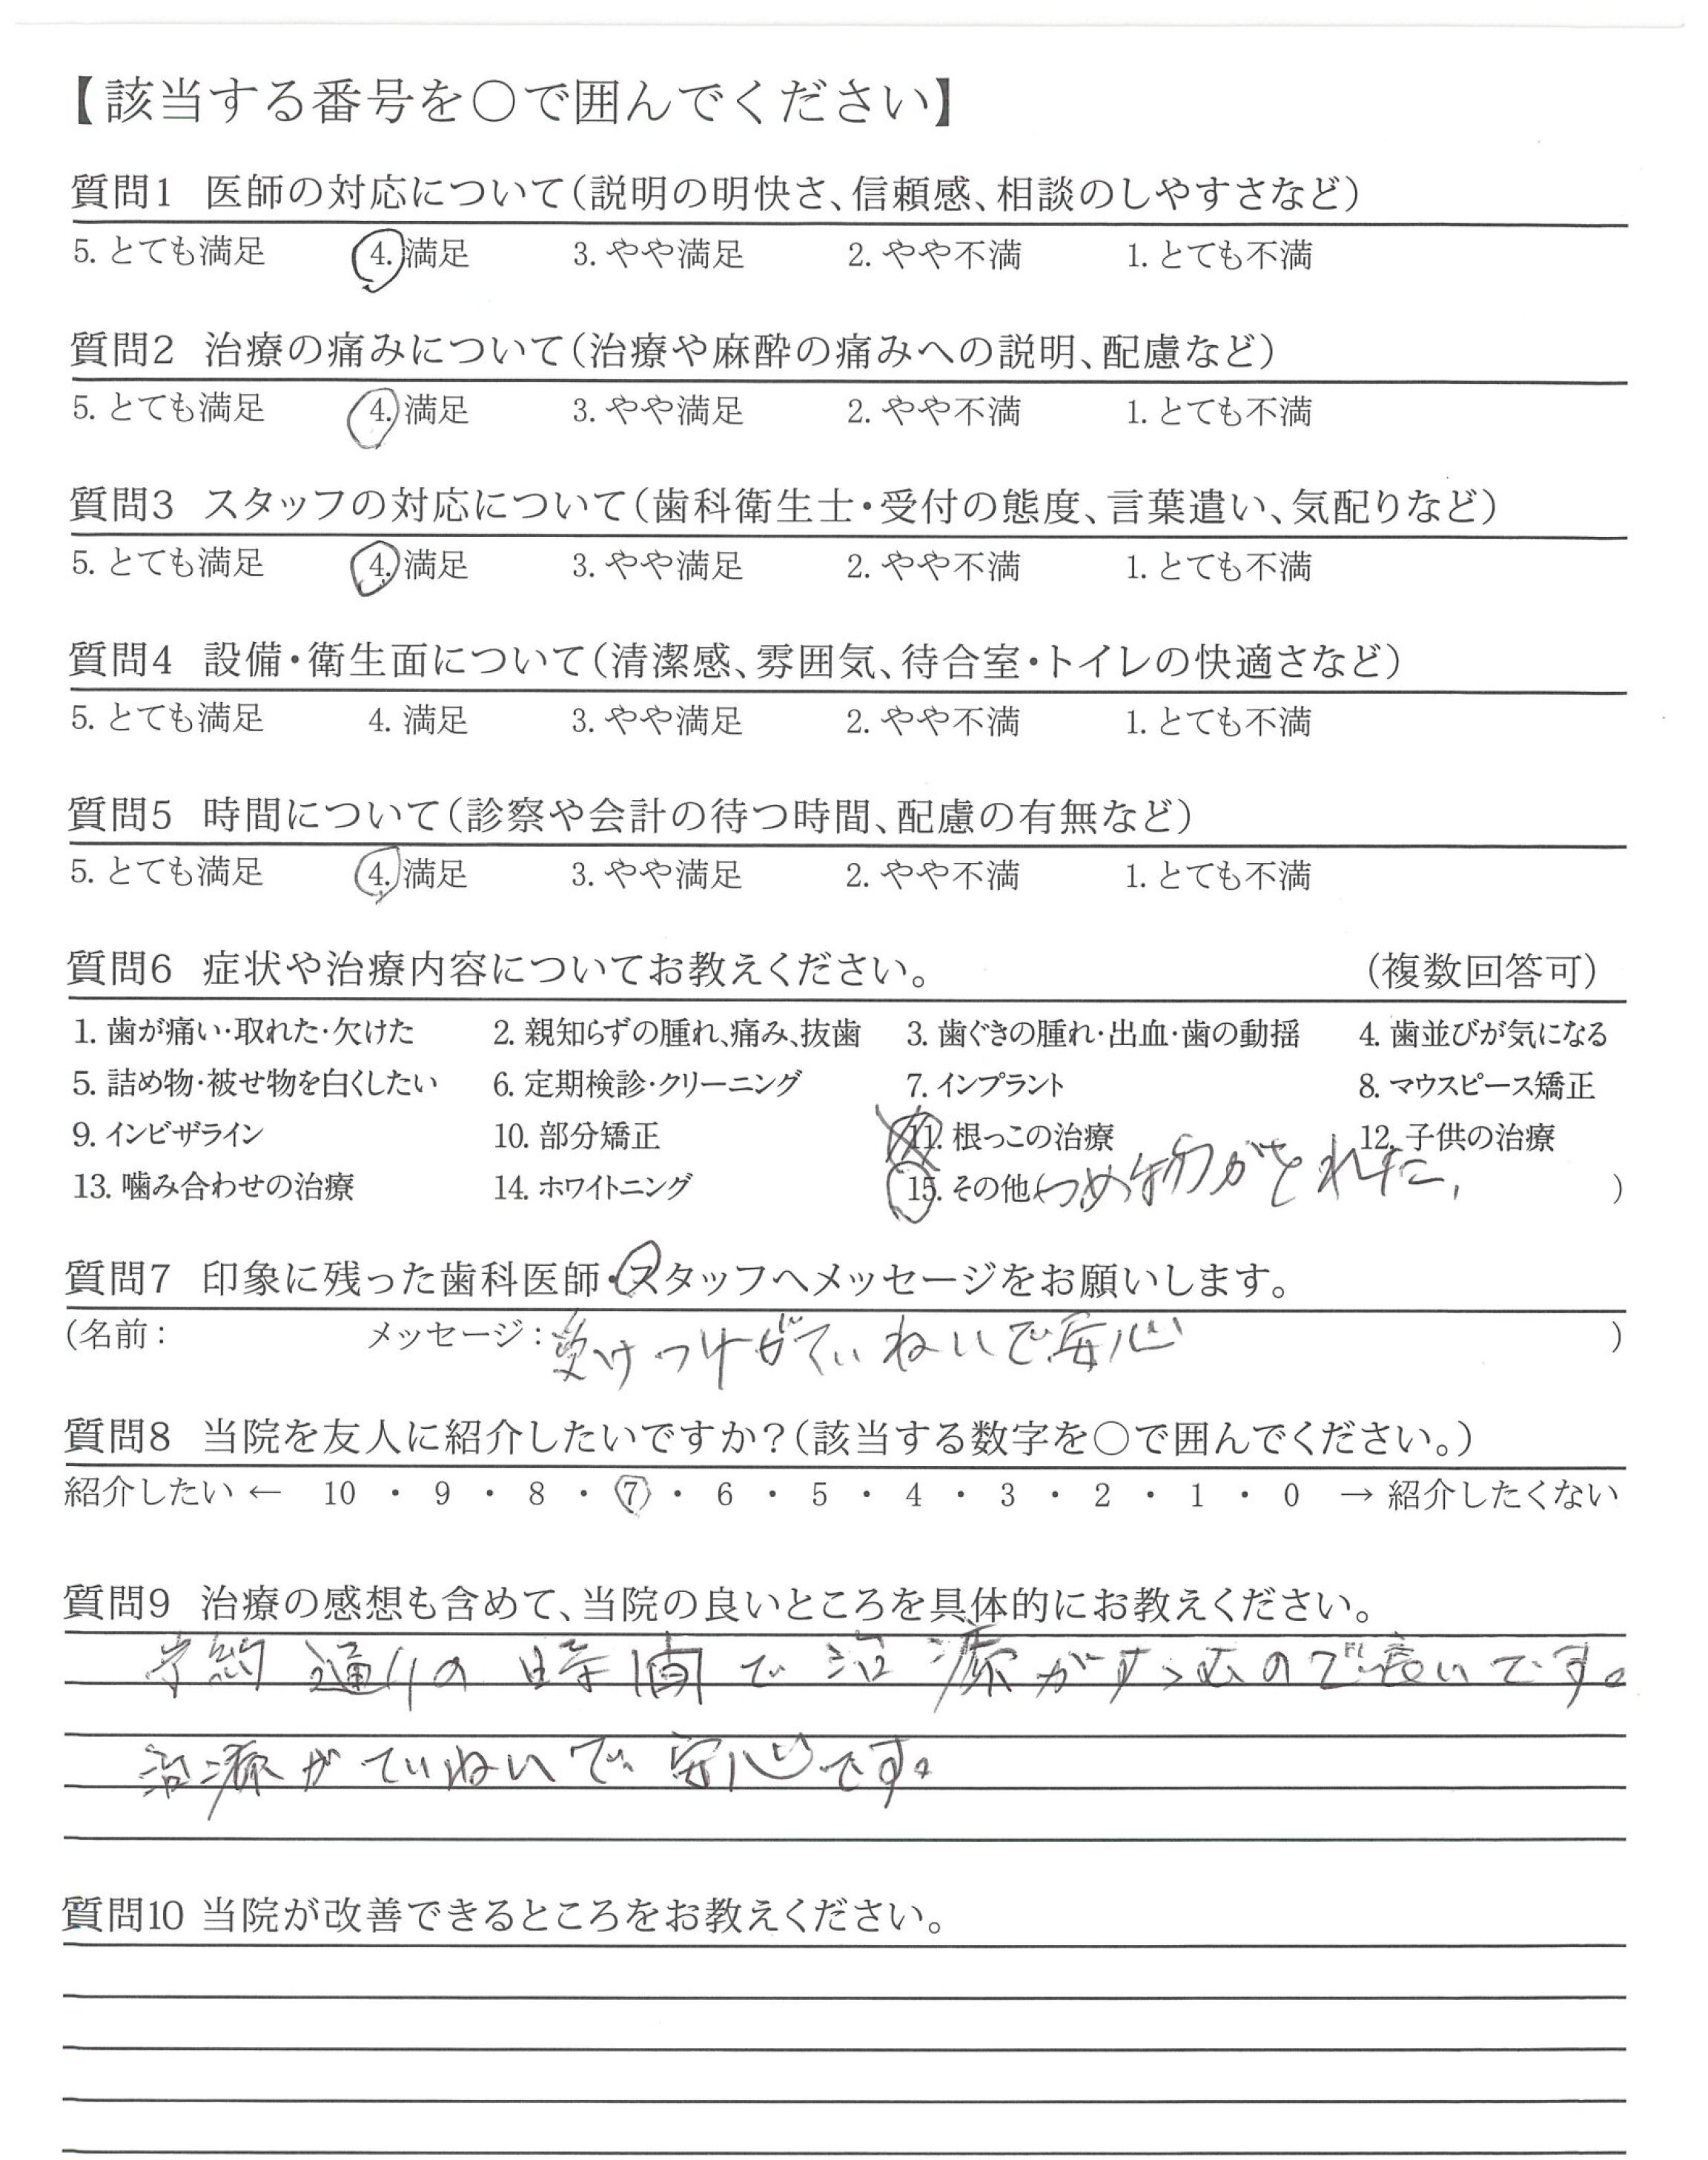 【該当する番号を○で囲んでください】
質問1 医師の対応について(説明の明快さ、信頼感、相談のしやすさなど)
5. とても満足 4. 満足 3. やや満足 2. やや不満 1. とても不満
質問2 治療の痛みについて(治療や麻酔の痛みへの説明、配慮など)
5. とても満足 4. 満足 3. やや満足 2. やや不満 1. とても不満
質問3 スタッフの対応について(歯科衛生士・受付の態度、言葉遣い、気配りなど)
5. とても満足 4. 満足 3. やや満足 2. やや不満 1. とても不満
質問4 設備・衛生面について(清潔感、雰囲気、待合室・トイレの快適さなど)
5. とても満足 4. 満足 3. やや満足 2. やや不満 1. とても不満
質問5 時間について(診察や会計の待つ時間、配慮の有無など)
5. とても満足 4. 満足 3. やや満足 2. やや不満 1. とても不満
質問6 症状や治療内容についてお教えください。 (複数回答可)
1. 歯が痛い・取れた・欠けた 2. 親知らずの腫れ、痛み、抜歯 3. 歯ぐきの腫れ・出血・歯の動揺 4. 歯並びが気になる
5. 詰め物・被せ物を白くしたい 6. 定期検診・クリーニング 7. インプラント 8. マウスピース矯正
9. インビザライン 10. 部分矯正 11. 根っこの治療 12. 子供の治療
13. 噛み合わせの治療 14. ホワイトニング 15. その他(つめ物がとれた、 )
質問7 印象に残った歯科医師・スタッフへメッセージをお願いします。
(名前: メッセージ:受けつけがていねいで安心 )
質問8 当院を友人に紹介したいですか?(該当する数字を○で囲んでください。)
紹介したい ← 10 ・ 9 ・ 8 ・ 7 ・ 6 ・ 5 ・ 4 ・ 3 ・ 2 ・ 1 ・ 0 → 紹介したくない
質問9 治療の感想も含めて、当院の良いところを具体的にお教えください。
予約通りの時間で治療がすすむので良いです。
治療がていねいで安心です。
質問10 当院が改善できるところをお教えください。